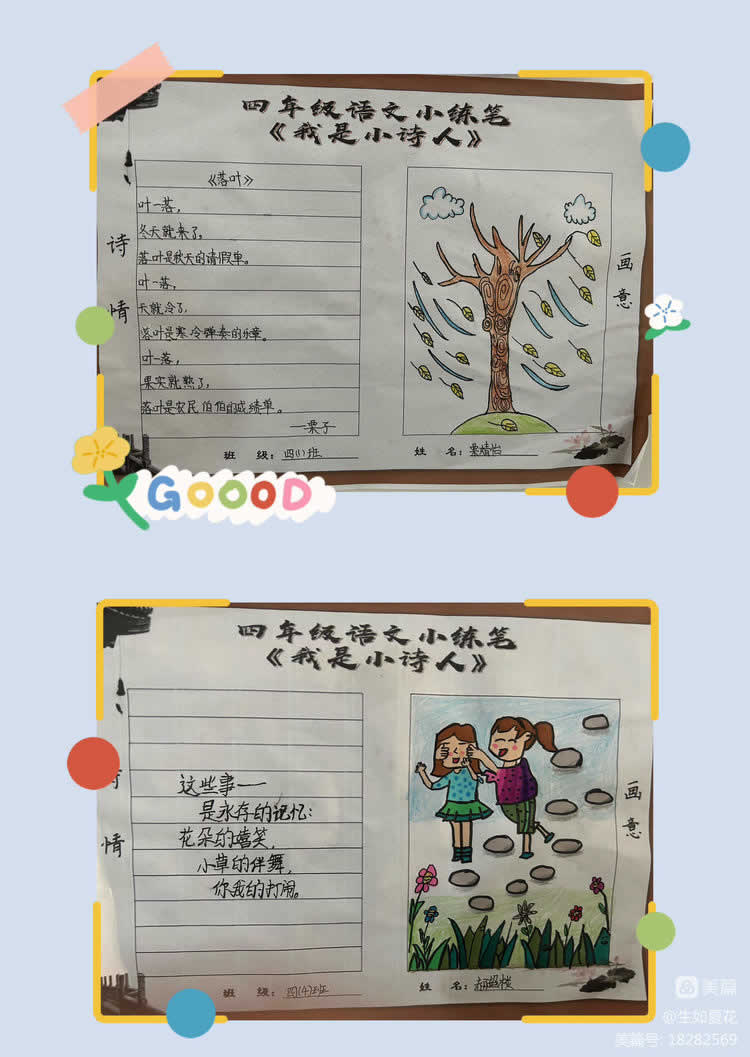 四年级语文小练笔
《我是小诗人》
诗情
《落叶》
叶一落，
冬天就来了，
落叶是秋天的请假单。
叶一落，
天就冷了，
落叶是寒冷弹奏的乐章。
叶一落，
果实就熟了，
落叶是农民伯伯的成绩单。
—栗子
画意
班 级：四(1)班
姓 名：栗婧怡
GOOOD
四年级语文小练笔
《我是小诗人》
诗情
这些事——
是永存的记忆：
花朵的嬉笑，
小草的伴舞，
你我的打闹。
画意
班 级：四(4)班
姓 名：
美篇
@生如夏花
美篇号: 18282569